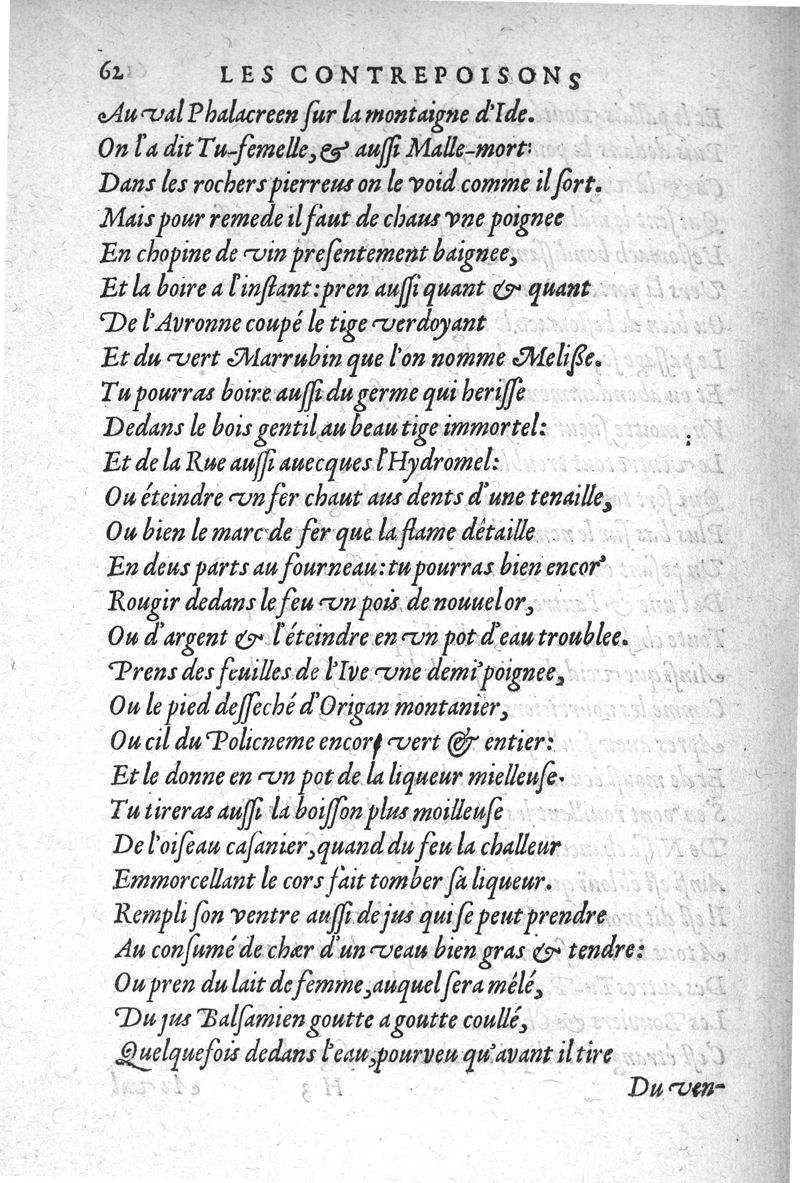 62 LES CONTREPOISONS
Au val Phalacreen ſur la montaigne d'Ide.
On l'a dit Tu-femelle, & auſſi Malle-mort:
Dans les rochers pierreus on le void comme il ſort.
Mais pour remede il faut de chaus vne poignee
En chopine de vin preſentement baignee,
Et la boire a l'inſtant: pren auſſi quant & quant
De l'Avronne coupé le tige verdoyant
Et du vert Marrubin que l'on nomme Meliße.
Tu pourras boire auſſi du germe qui heriſſe
Dedans le bois gentil au beau tige immortel:
Et de la Rue auſſi auecques l'Hydromel:
Ou éteindre vn fer chaut aus dents d'une tenaille,
Ou bien le marc de fer que la flame détaille
En deus parts au fourneau: tu pourras bien encor'
Rougir dedans le feu vn pois de nouuel or,
Ou d'argent & l'éteindre en vn pot d'eau troublee.
Prens des feuilles de l'Ive vne demi'poignee,
Ou le pied deſſeché d'Origan montanier,
Ou cil du Policneme encor vert & entier:
Et le donne en vn pot de la liqueur mielleuſe.
Tu tireras auſſi la boiſſon plus moilleuſe
De l'oiſeau caſanier, quand du feu la challeur
Emmorcellant le cors fait tomber ſa liqueur.
Rempli ſon ventre auſſi de jus qui ſe peut prendre
Au conſumé de chær d'un veau bien gras & tendre:
Ou pren du lait de femme, auquel ſera mélé,
Du jus Balſamien goutte a goutte coullé,
Quelquefois dedans l'eau, pourveu qu'avant il tire
Du ven-